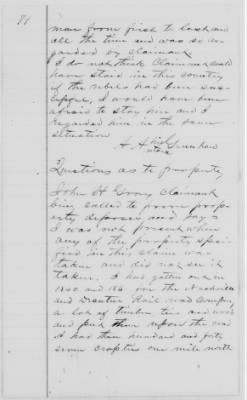 man from first to last and
all the time and was so re-
garded by claimant
I do not think Claimant could
have staid in this country
if the rebels had been suc-
cessful, I would have been
afraid to stay here and I
regarded him in the same
situation
A. A. his mark
Questions as to property,
John H Gray Claimant
being called to prove prop-
erty deposes and says
I was not present when
any of the property speci-
fied in this claim was
taken and did not see it
taken. I had gotten out in
1860 and 1861 for the
and Decatur Rail road Company
a lot of timber ties and wood
and put them upon the road
I had three hundred and forty
seven cross ties one mile north